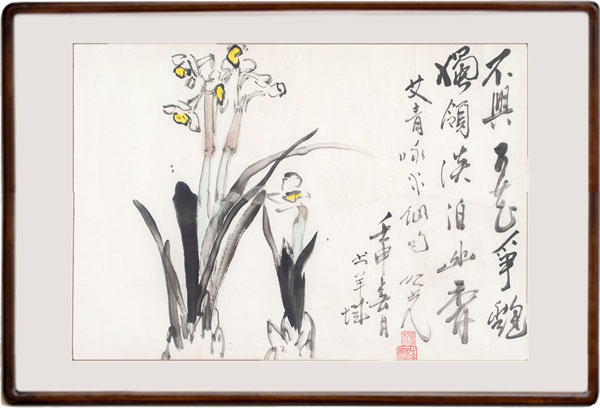 不與百花爭艷
獨領淡泊幽香
艾青咏水仙句
壬申春月
羊城